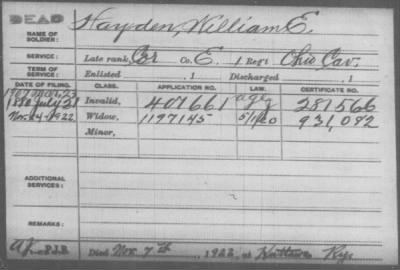 DEAD
NAME OF SOLDIER:
Hayden, William E.
SERVICE:
Late rank, Cor Co. E, 1 Reg't Ohio Cav.
TERM OF SERVICE:
Enlisted , 1 Discharged , 1
DATE OF FILING. CLASS. APPLICATION NO. LAW. CERTIFICATE NO.
1907 Mar. 23
1880 July 21 Invalid, 407661 age 281566
Nov. 24-1922 Widow, 1197145 5/1/20 931,092
Minor,
ADDITIONAL SERVICES:
REMARKS:
Died Nov. 7th, 1922, at Kuttawa Ky.